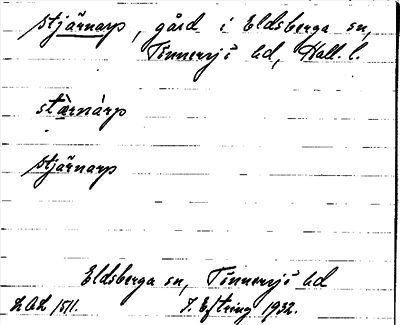 Stjärnarp, gård i Eldsberga sn,
Tönnersjö hd, Hall. l.
stæ̀rnàrp
Stjärnarp
Eldsberga sn, Tönnersjö hd
LAL 1511. J. Eftring 1932.